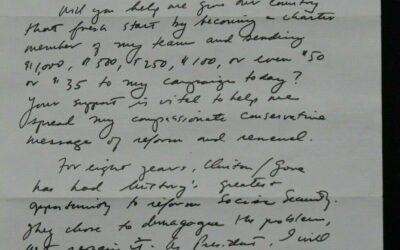 Will you help me give our country
that fresh start by becoming a charter
member of my team and sending
$1,000, $500, $250, $100, or even $50
or $35 to my campaign today?
Your support is vital to help me
spread my compassionate conservative
message of reform and renewal.
For eight years, Clinton/Gore
has had history's greatest
opportunity to reform Social Security.
They chose to demagogue the problem,
not repair it. As President, I will